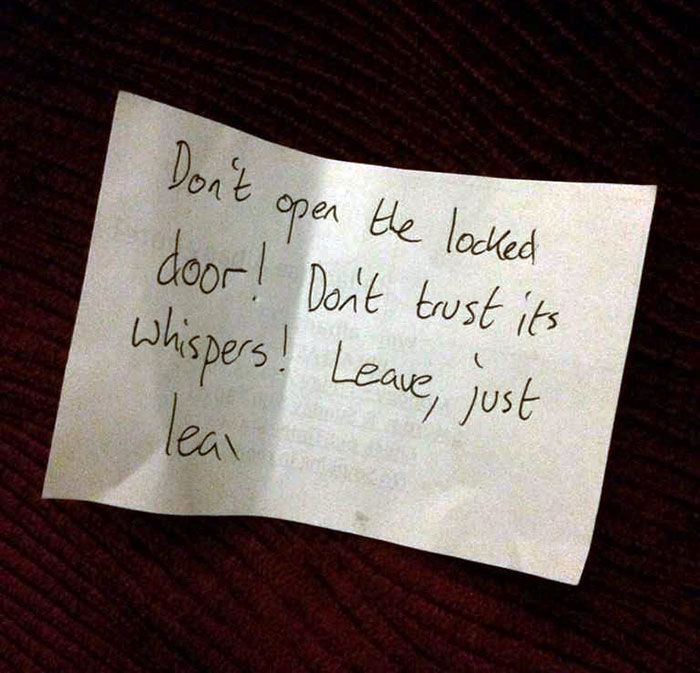 Don't open the locked
door! Don't trust its
whispers! Leave, just
lea\